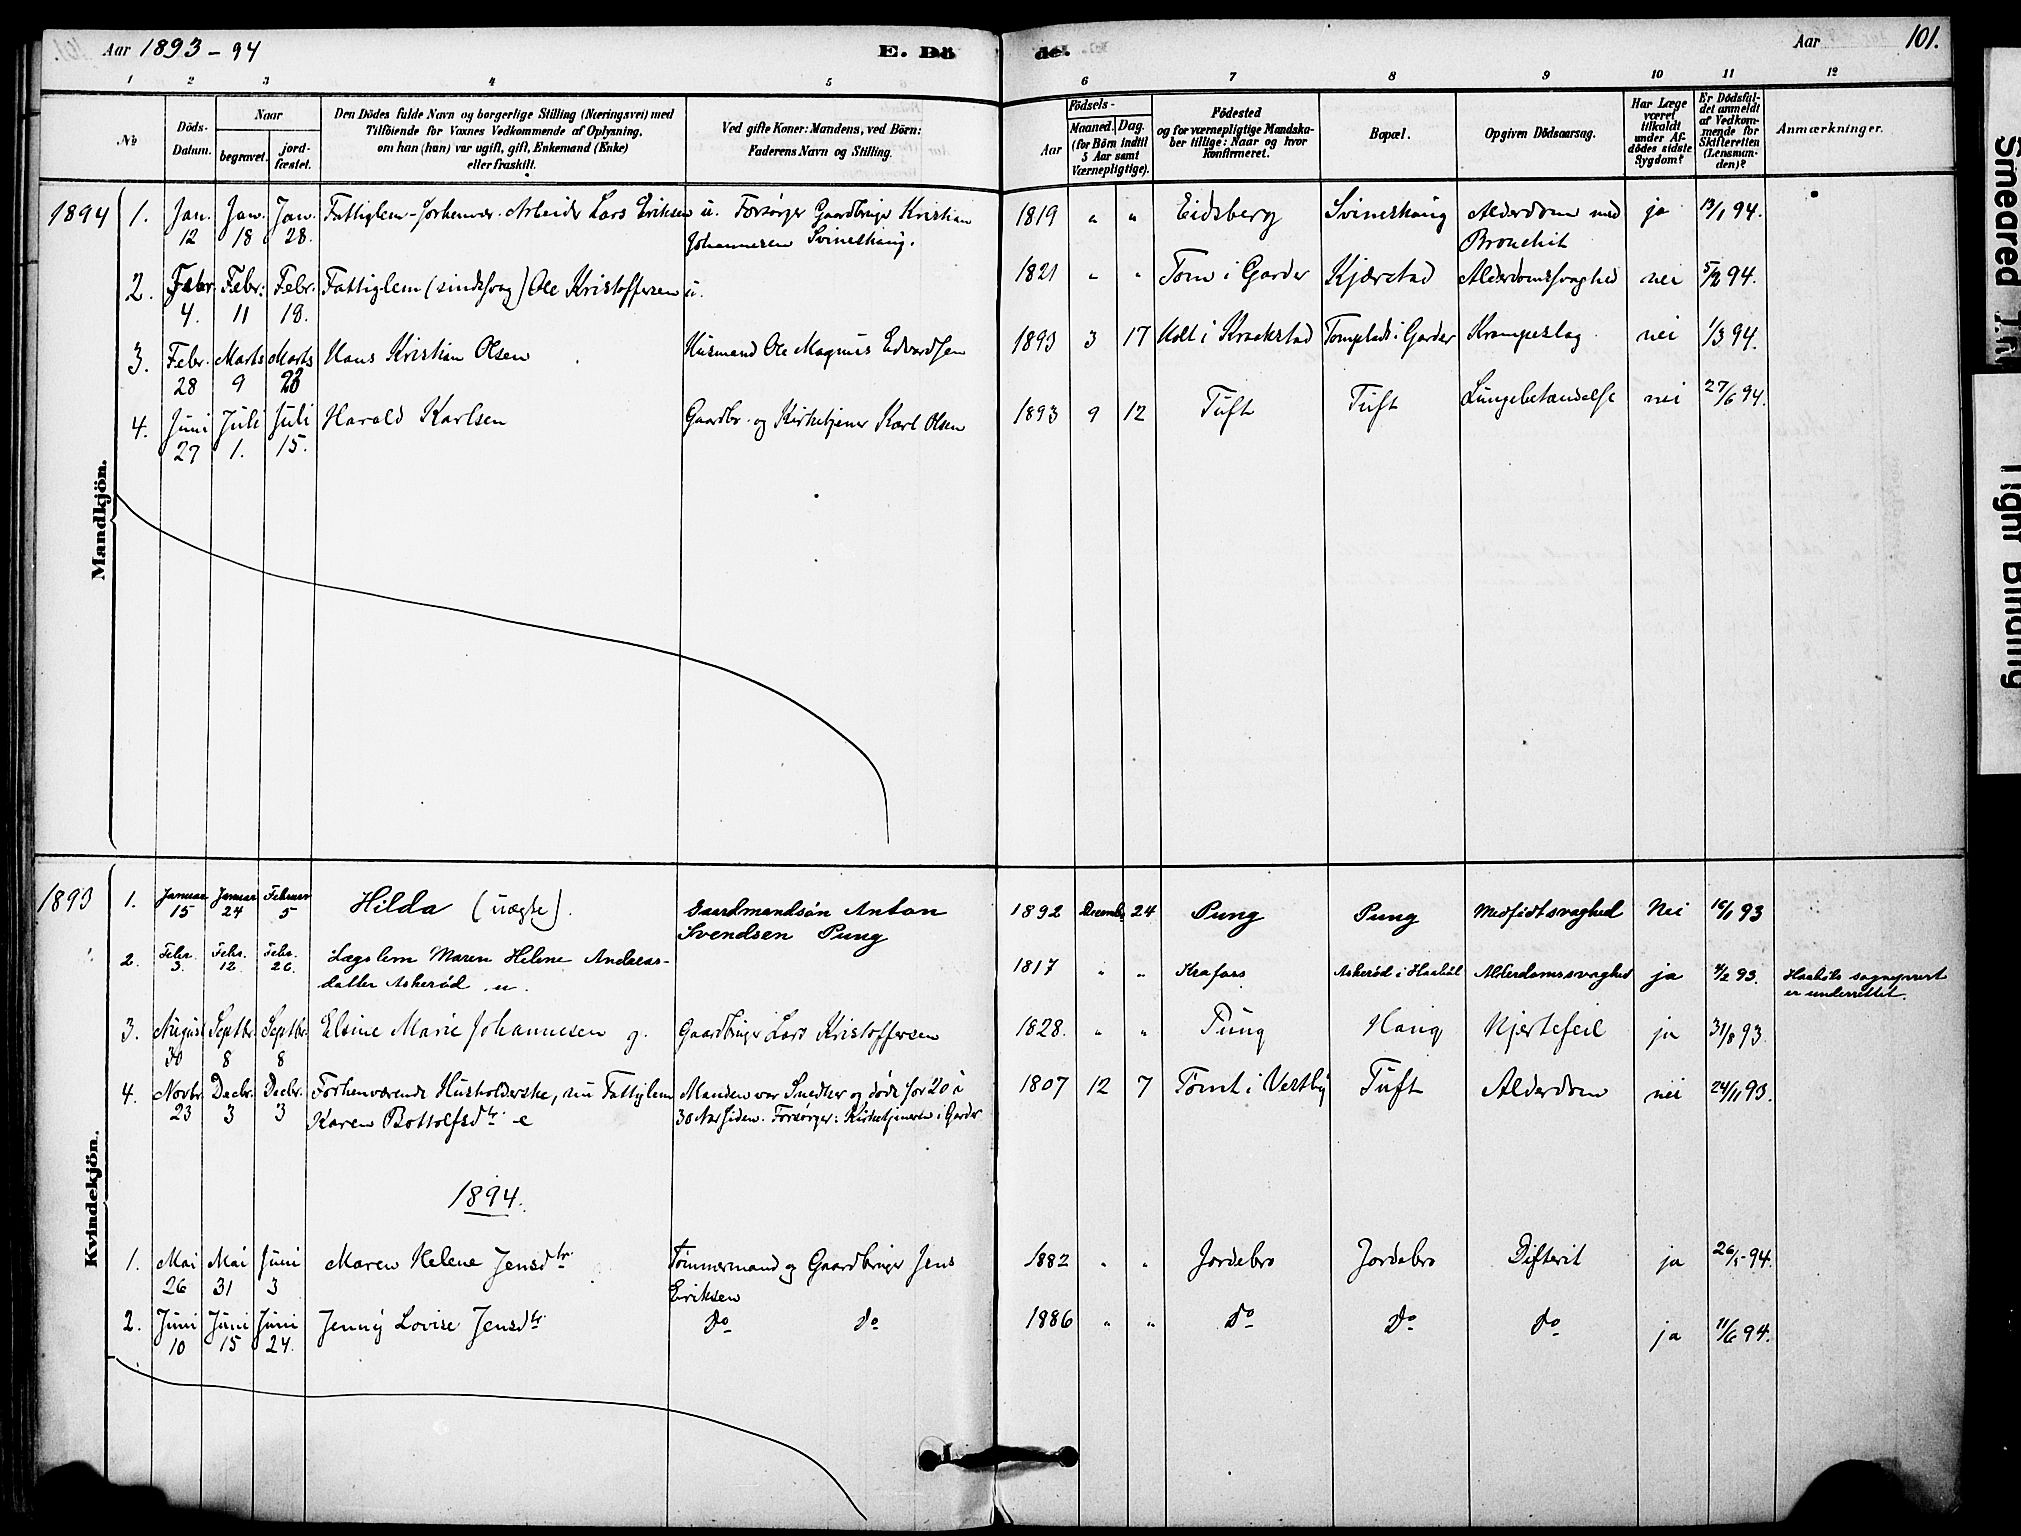 Aar 1893-94
E. Dö
de.
Aar
101.
1 2 3 4 5 6 7 8 9 10 11 12
No
Döds-
Datum.
Naar
begravet.
jord-
fæstet.
Den Dödes fulde Navn og borgerlige Stilling (Næringsvei) med
Tilföiende for Voxnes Vedkommende af Oplysning,
om han (hun) var ugift, gift, Enkemand (Enke)
eller fraskilt.
Ved gifte Koner: Mandens, ved Börn:
Faderens Navn og Stilling.
Födsels-
Aar
Maaned. Dag.
(for Börn indtil
5 Aar samt
Værnepligtige).
Födested
og for værnepligtige Mandska-
ber tillige: Naar og hvor
Konfirmeret.
Bopæl.
Opgiven Dödsaarsag.
Har Læge
været
tilkaldt
under Af-
dödes sidste
Sygdom?
Er Dödsfal-
det anmeldt
af Vedkom-
mende for
Skifteretten
(Lensman-
den)?
Anmærkninger.
Mandkjön.
1894 1. Jan. Jan. Jan. Fattiglem - forhenvær. Arbeider Lars Eriksen u. Forsørger Gaardbruger Kristian 1819 " " Eidsberg Svineshaug Alderdom med ja 13/1 94.
12 18 28. Johannesen Svineshaug. Bronchit
2. Febr. Febr. Febr. Fattiglem (sindssvag) Ole Kristoffersen u. 1821 " " Tom i Garder Kjærstad Alderdomssvaghed nei 5/2 94.
4. 11 18.
3. Febr. Marts Marts Hans Kristian Olsen Husmand Ole Magnus Edvardsen 1893 3 17 Holt i Kraakstad Tomplads i Garder Krampeslag nei 1/3 94.
28 9 23
4. Juni Juli Juli Harald Karlsen Gaardbr. og Kirketjener Karl Olsen 1893 9 12 Tuft Tuft Lungebetændelse nei 27/6 94.
27 1. 15.
Kvindekjön.
1893 1. Januar Januar Februar Hilda (uægte). Gaardmandsøn Anton 1892 Decemb. 24 Pung Pung Medfødt svaghed Nei 16/1 93
15 24 5 Svendsen Pung
2. Febr. Febr. Febr. Lægslem Maren Helene Andreas- 1817 " " Krafors Askerød i Haabøl Alderdomssvaghed ja 4/2 93. Haabøls sogneprest
3. 12 26 datter Askerød u. er underrettet.
3. August Septbr. Septbr. Elsine Marie Johannesen g. Gaardbruger Lars Kristoffersen 1828. " " Pung Haug Hjertefeil ja 31/8 93.
30 8 8
4. Novbr. Decbr. Decbr. Forhenværende Husholderske, nu Fattiglem Manden var Snedker og døde for 20 à 1807 12 7 Tomt i Vestby Tuft Alderdom nei 24/11 93.
23 3 3 Karen Bottolfsdtr. e 30 Aar siden. Forsørger: Kirketjeneren i Garder
1894.
1. Mai Mai Juni Maren Helene Jensdtr Tømmermand og Gaardbruger Jens 1882 " " Jordebro Jordebro Difterit ja 26/5 94.
26 31 3 Eriksen
2. Juni Juni Juni Jenny Lovise Jensdtr. do do 1886 " " do do do ja 11/6 94.
10 15 24.
Smeared
Tight Binding